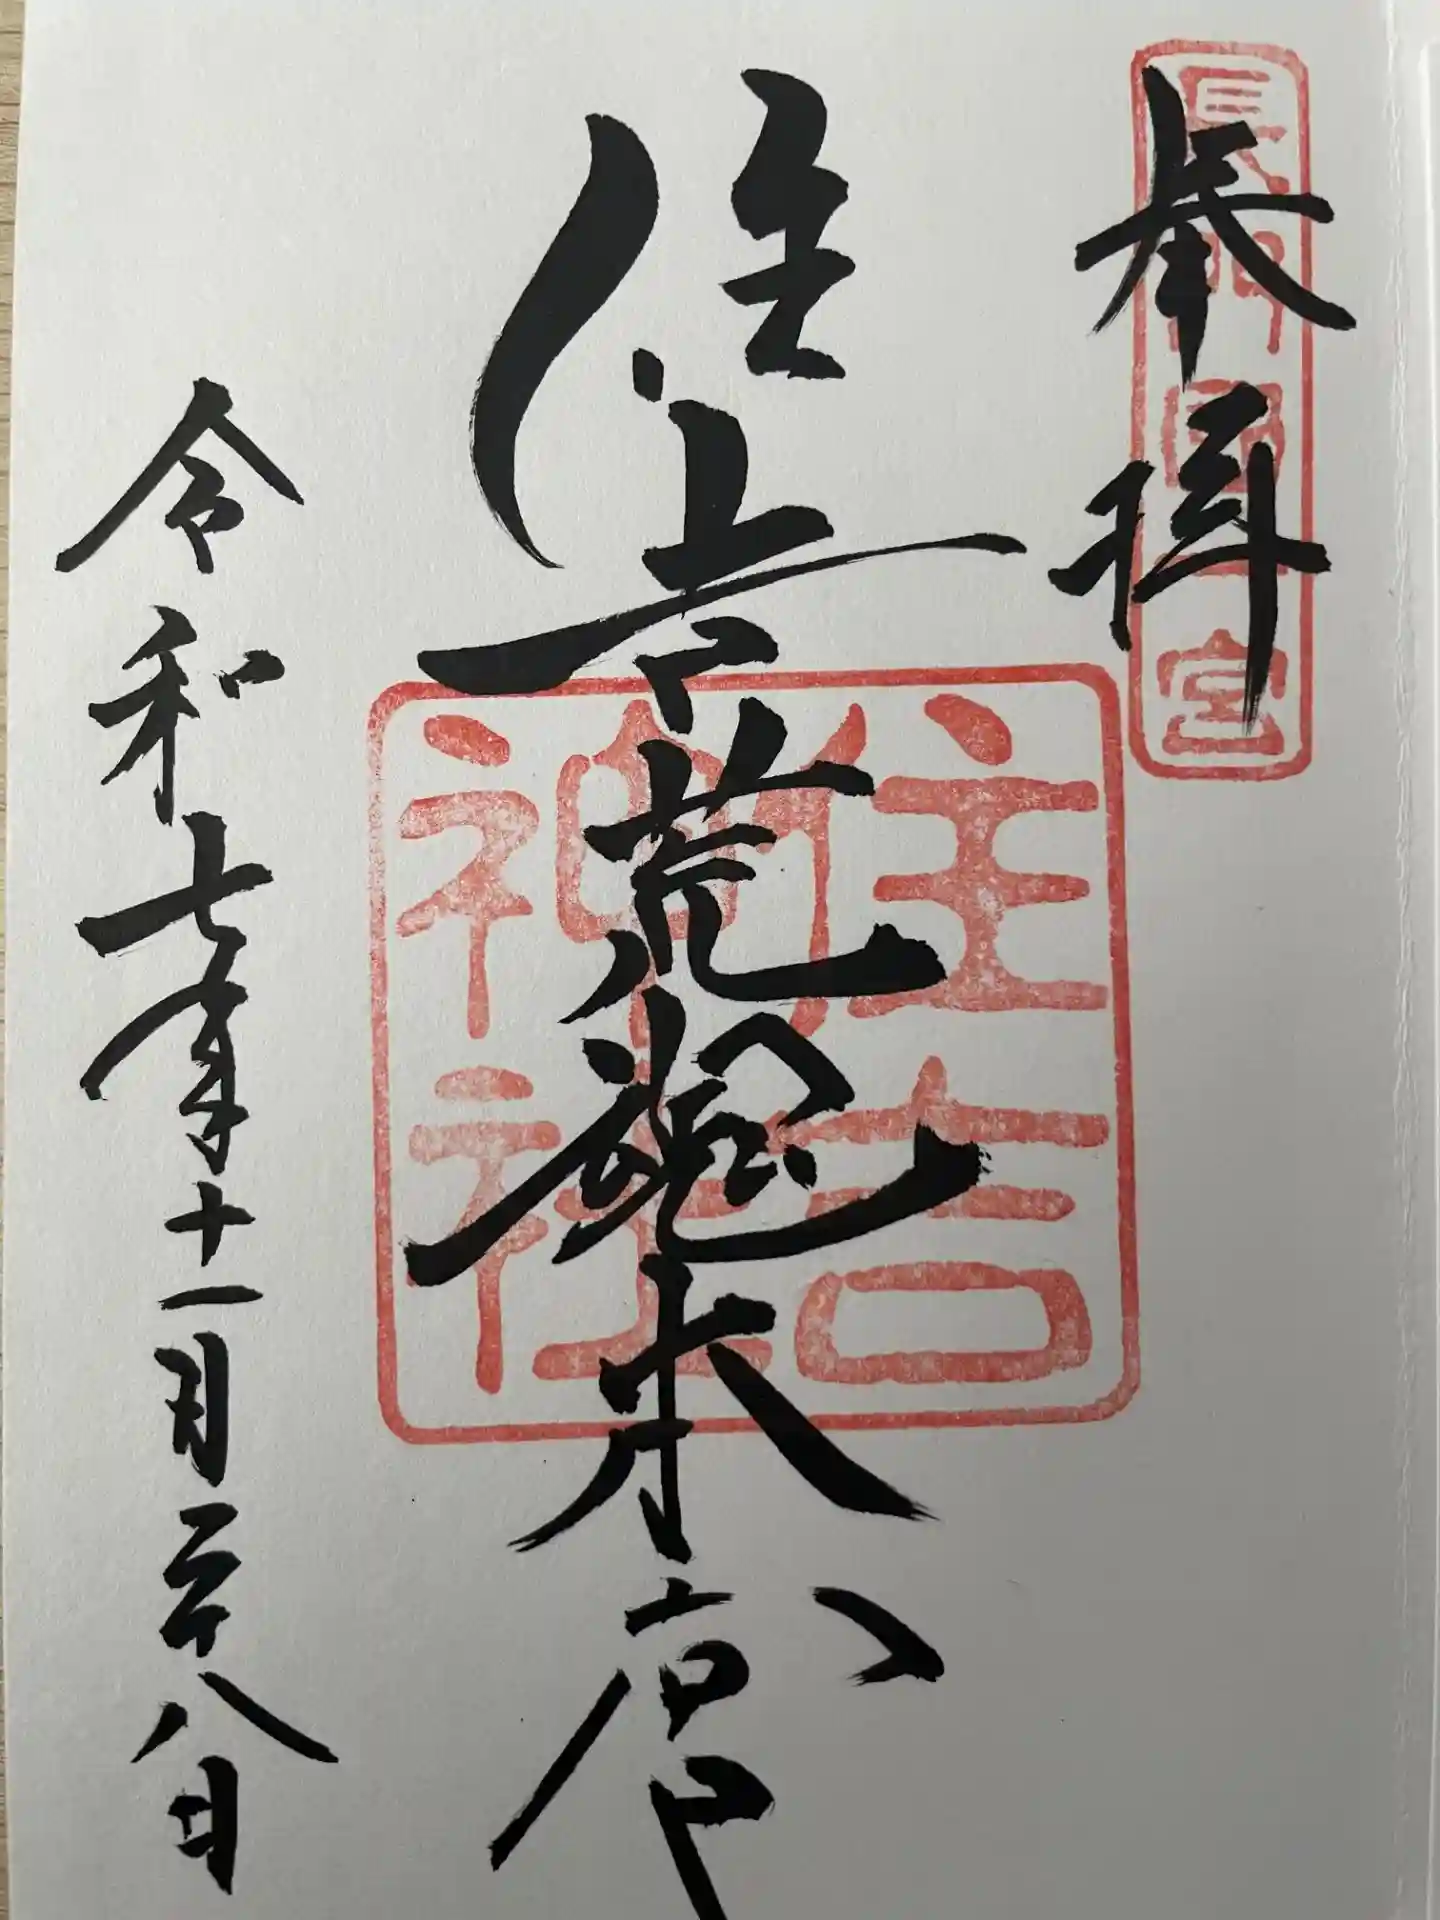 奉拝
長門国一宮
住吉荒魂本宮
住吉
神社
令和七年十一月二十八日